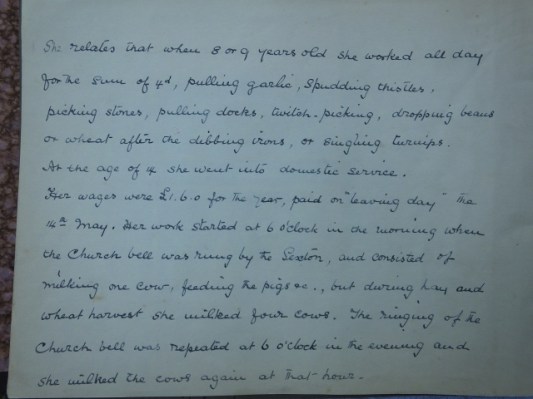 She relates that when 8 or 9 years old she worked all day
for the sum of 4d, pulling garlic, spudding thistles,
picking stones, pulling docks, twitch-picking, dropping beans
or wheat after the dibbing irons, or singling turnips.
At the age of 14 she went into domestic service.
Her wages were £1.6.0 for the year, paid on "leaving day" the
14th May. Her work started at 6 o'clock in the morning when
the Church bell was rung by the Sexton, and consisted of
milking one cow, feeding the pigs &c., but during hay and
wheat harvest she milked four cows. The ringing of the
Church bell was repeated at 6 o'clock in the evening and
she milked the cows again at that hour.